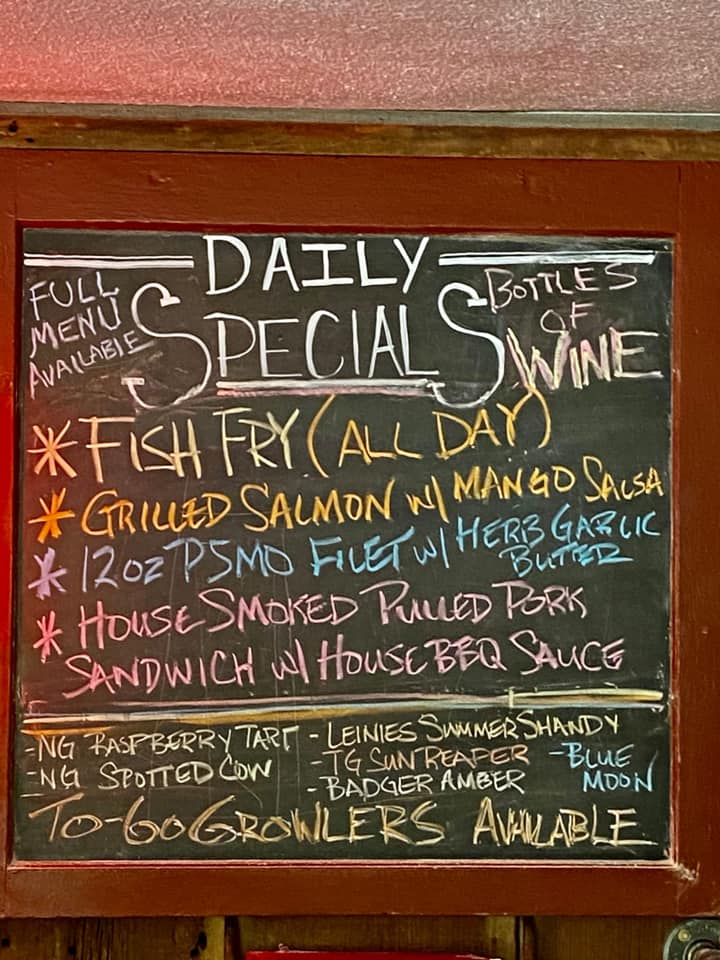 DAILY
SPECIALS
FULL
MENU
AVAILABLE
BOTTLES
OF
WINE
* FISH FRY (ALL DAY)
* GRILLED SALMON W/ MANGO SALSA
* 12OZ PSMO FILET W/ HERB GARLIC
BUTTER
* HOUSE SMOKED PULLED PORK
SANDWICH W/ HOUSE BBQ SAUCE
-NG RASPBERRY TART
-NG SPOTTED COW
- LEINIES SUMMER SHANDY
-TG SUN REAPER
- BADGER AMBER
-BLUE
MOON
TO-GO GROWLERS AVAILABLE